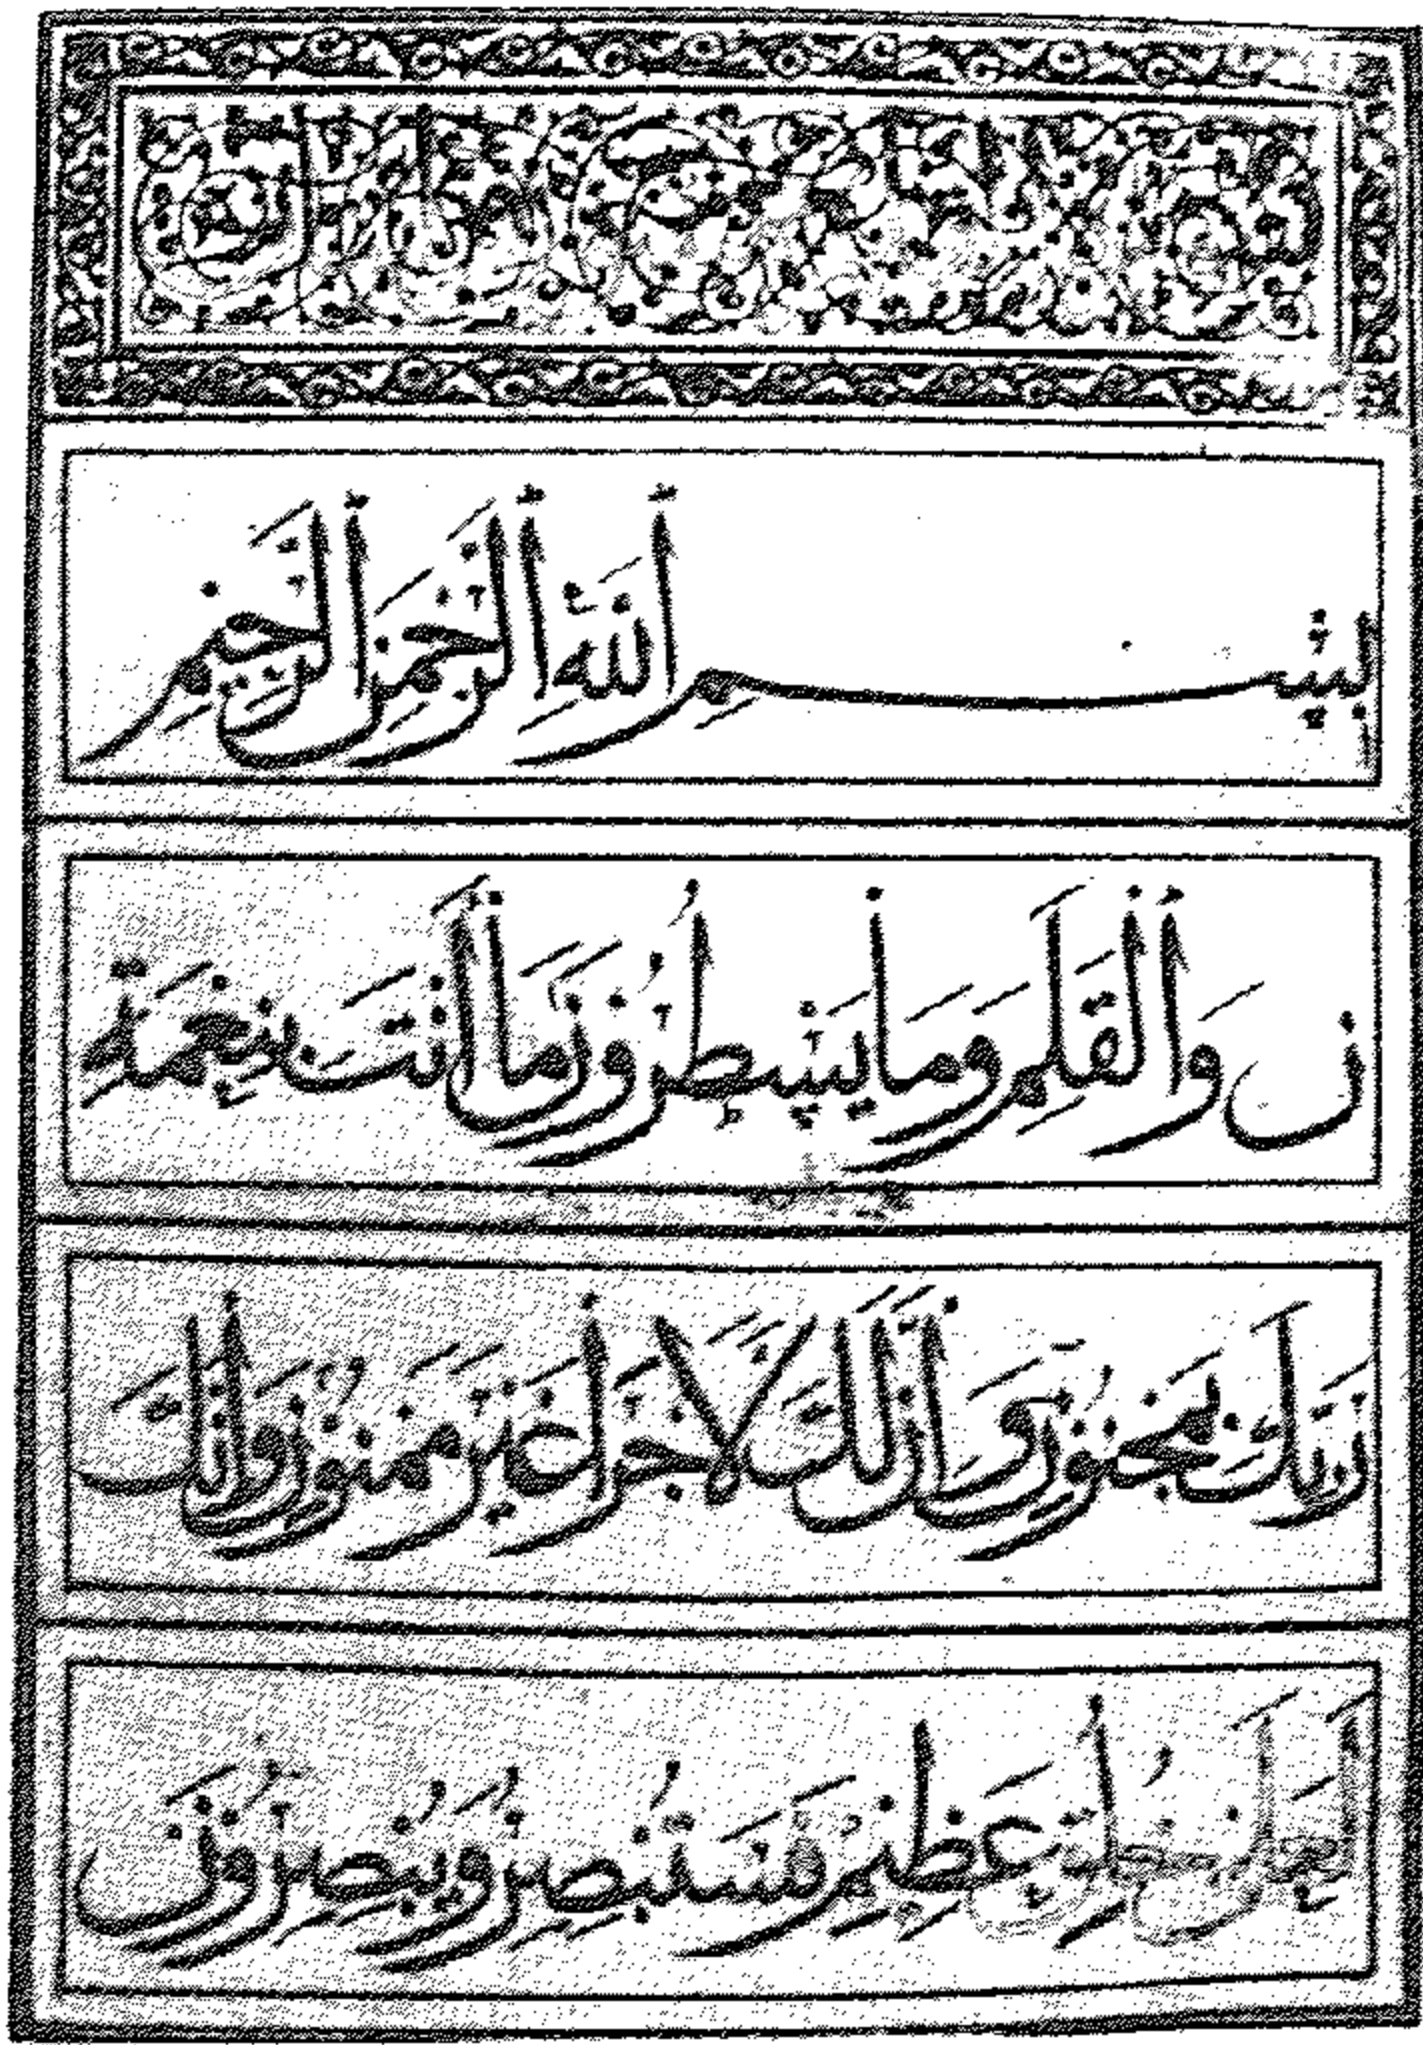 بِسْمِ ٱللَّهِ ٱلرَّحْمَنِ ٱلرَّحِيمِ
ن وَٱلْقَلَمِ وَمَا يَسْطُرُونَ مَا أَنْتَ بِنِعْمَةِ
رَبِّكَ بِمَجْنُونٍ وَإِنَّ لَكَ لَأَجْرًا غَيْرَ مَمْنُونٍ وَإِنَّكَ
لَعَلَى خُلُقٍ عَظِيمٍ فَسَتُبْصِرُ وَيُبْصِرُونَ